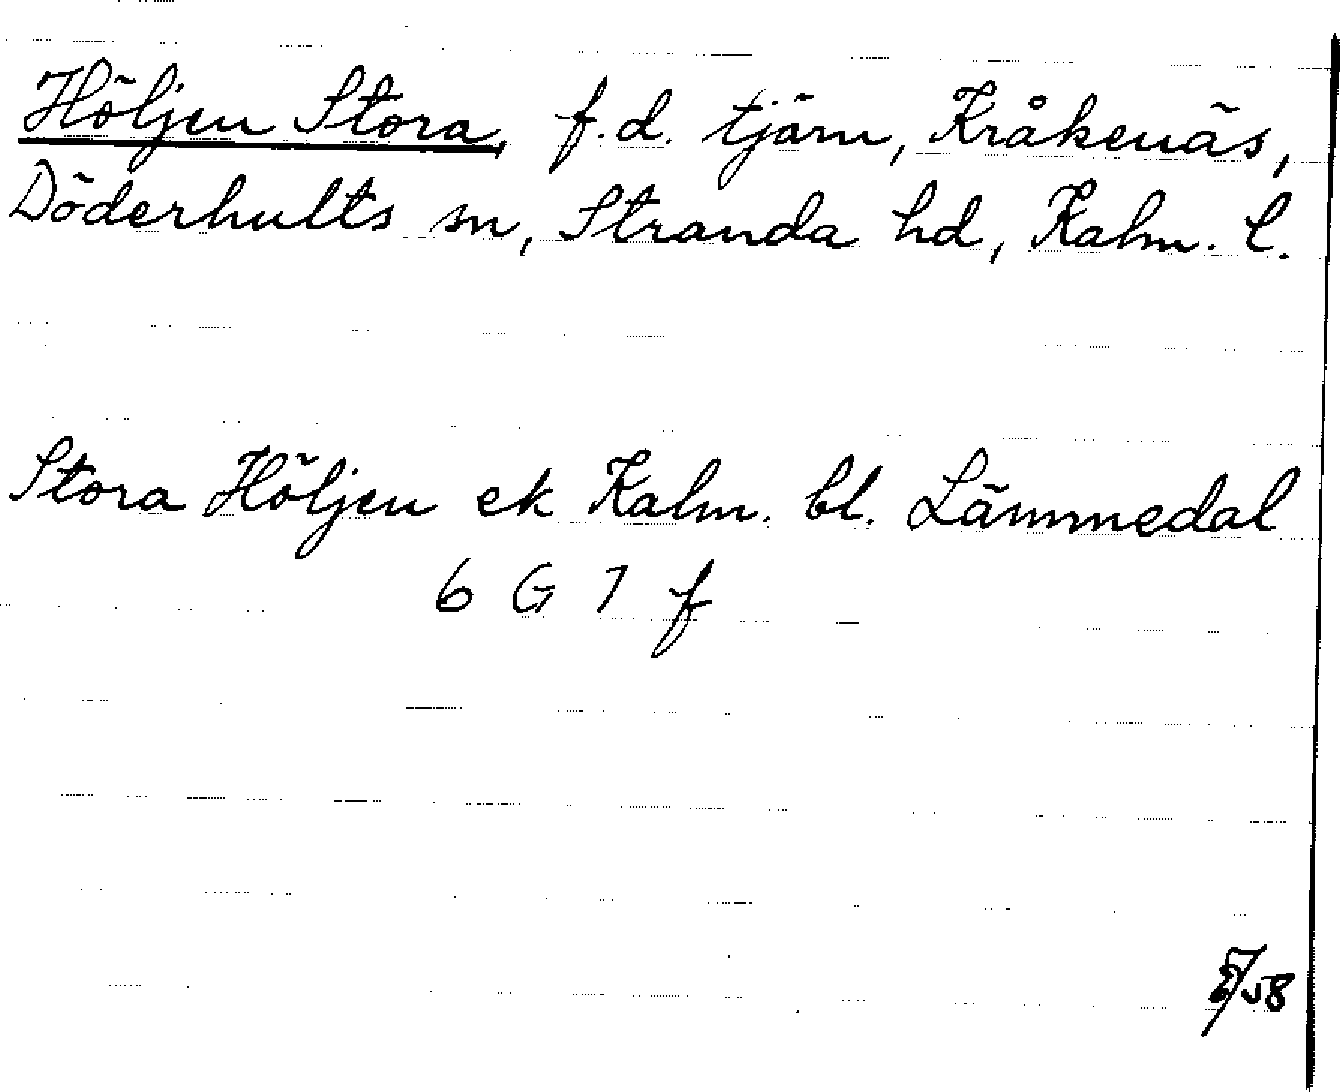 Höljen Stora, f.d. tjärn, Kråkenäs,
Döderhults sn, Stranda hd, Kalm. l.
Stora Höljen ek Kalm. bl. Lämmedal
6 G 7 f